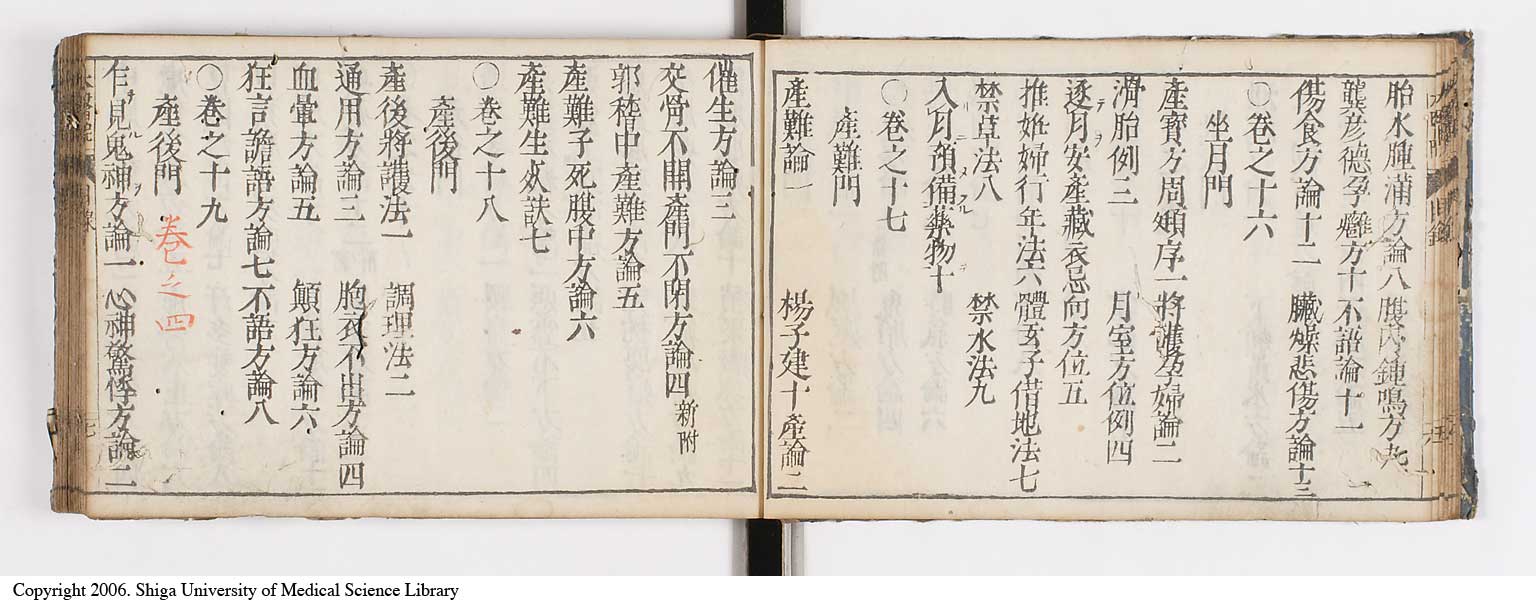 胎水腫滿方論八 腹內鍾鳴方九
龔彥德孕癰方十 不語論十一
傷食方論十二 臟燥悲傷方論十三
〇卷之十六
坐月門
產寶方周頲序一 將護孕婦論二
滑胎例三 月室方位例四
逐月安產藏衣忌向方位五
推姙婦行年法六 體玄子借地法七
禁草法八 禁水法九
入月預備藥物十
〇卷之十七
產難門
產難論一 楊子建十產論二
催生方論三
交骨不開產門不閉方論四 新附
郭稽中產難方論五
產難子死腹中方論六
產難生死訣七
〇卷之十八
產後門
產後將護法一 調理法二
通用方論三 胞衣不出方論四
血暈方論五 顛狂方論六
狂言譫語方論七 不語方論八
〇卷之十九
產後門
卷之四
乍見鬼神方論一 心神驚悸方論二
Copyright 2006. Shiga University of Medical Science Library